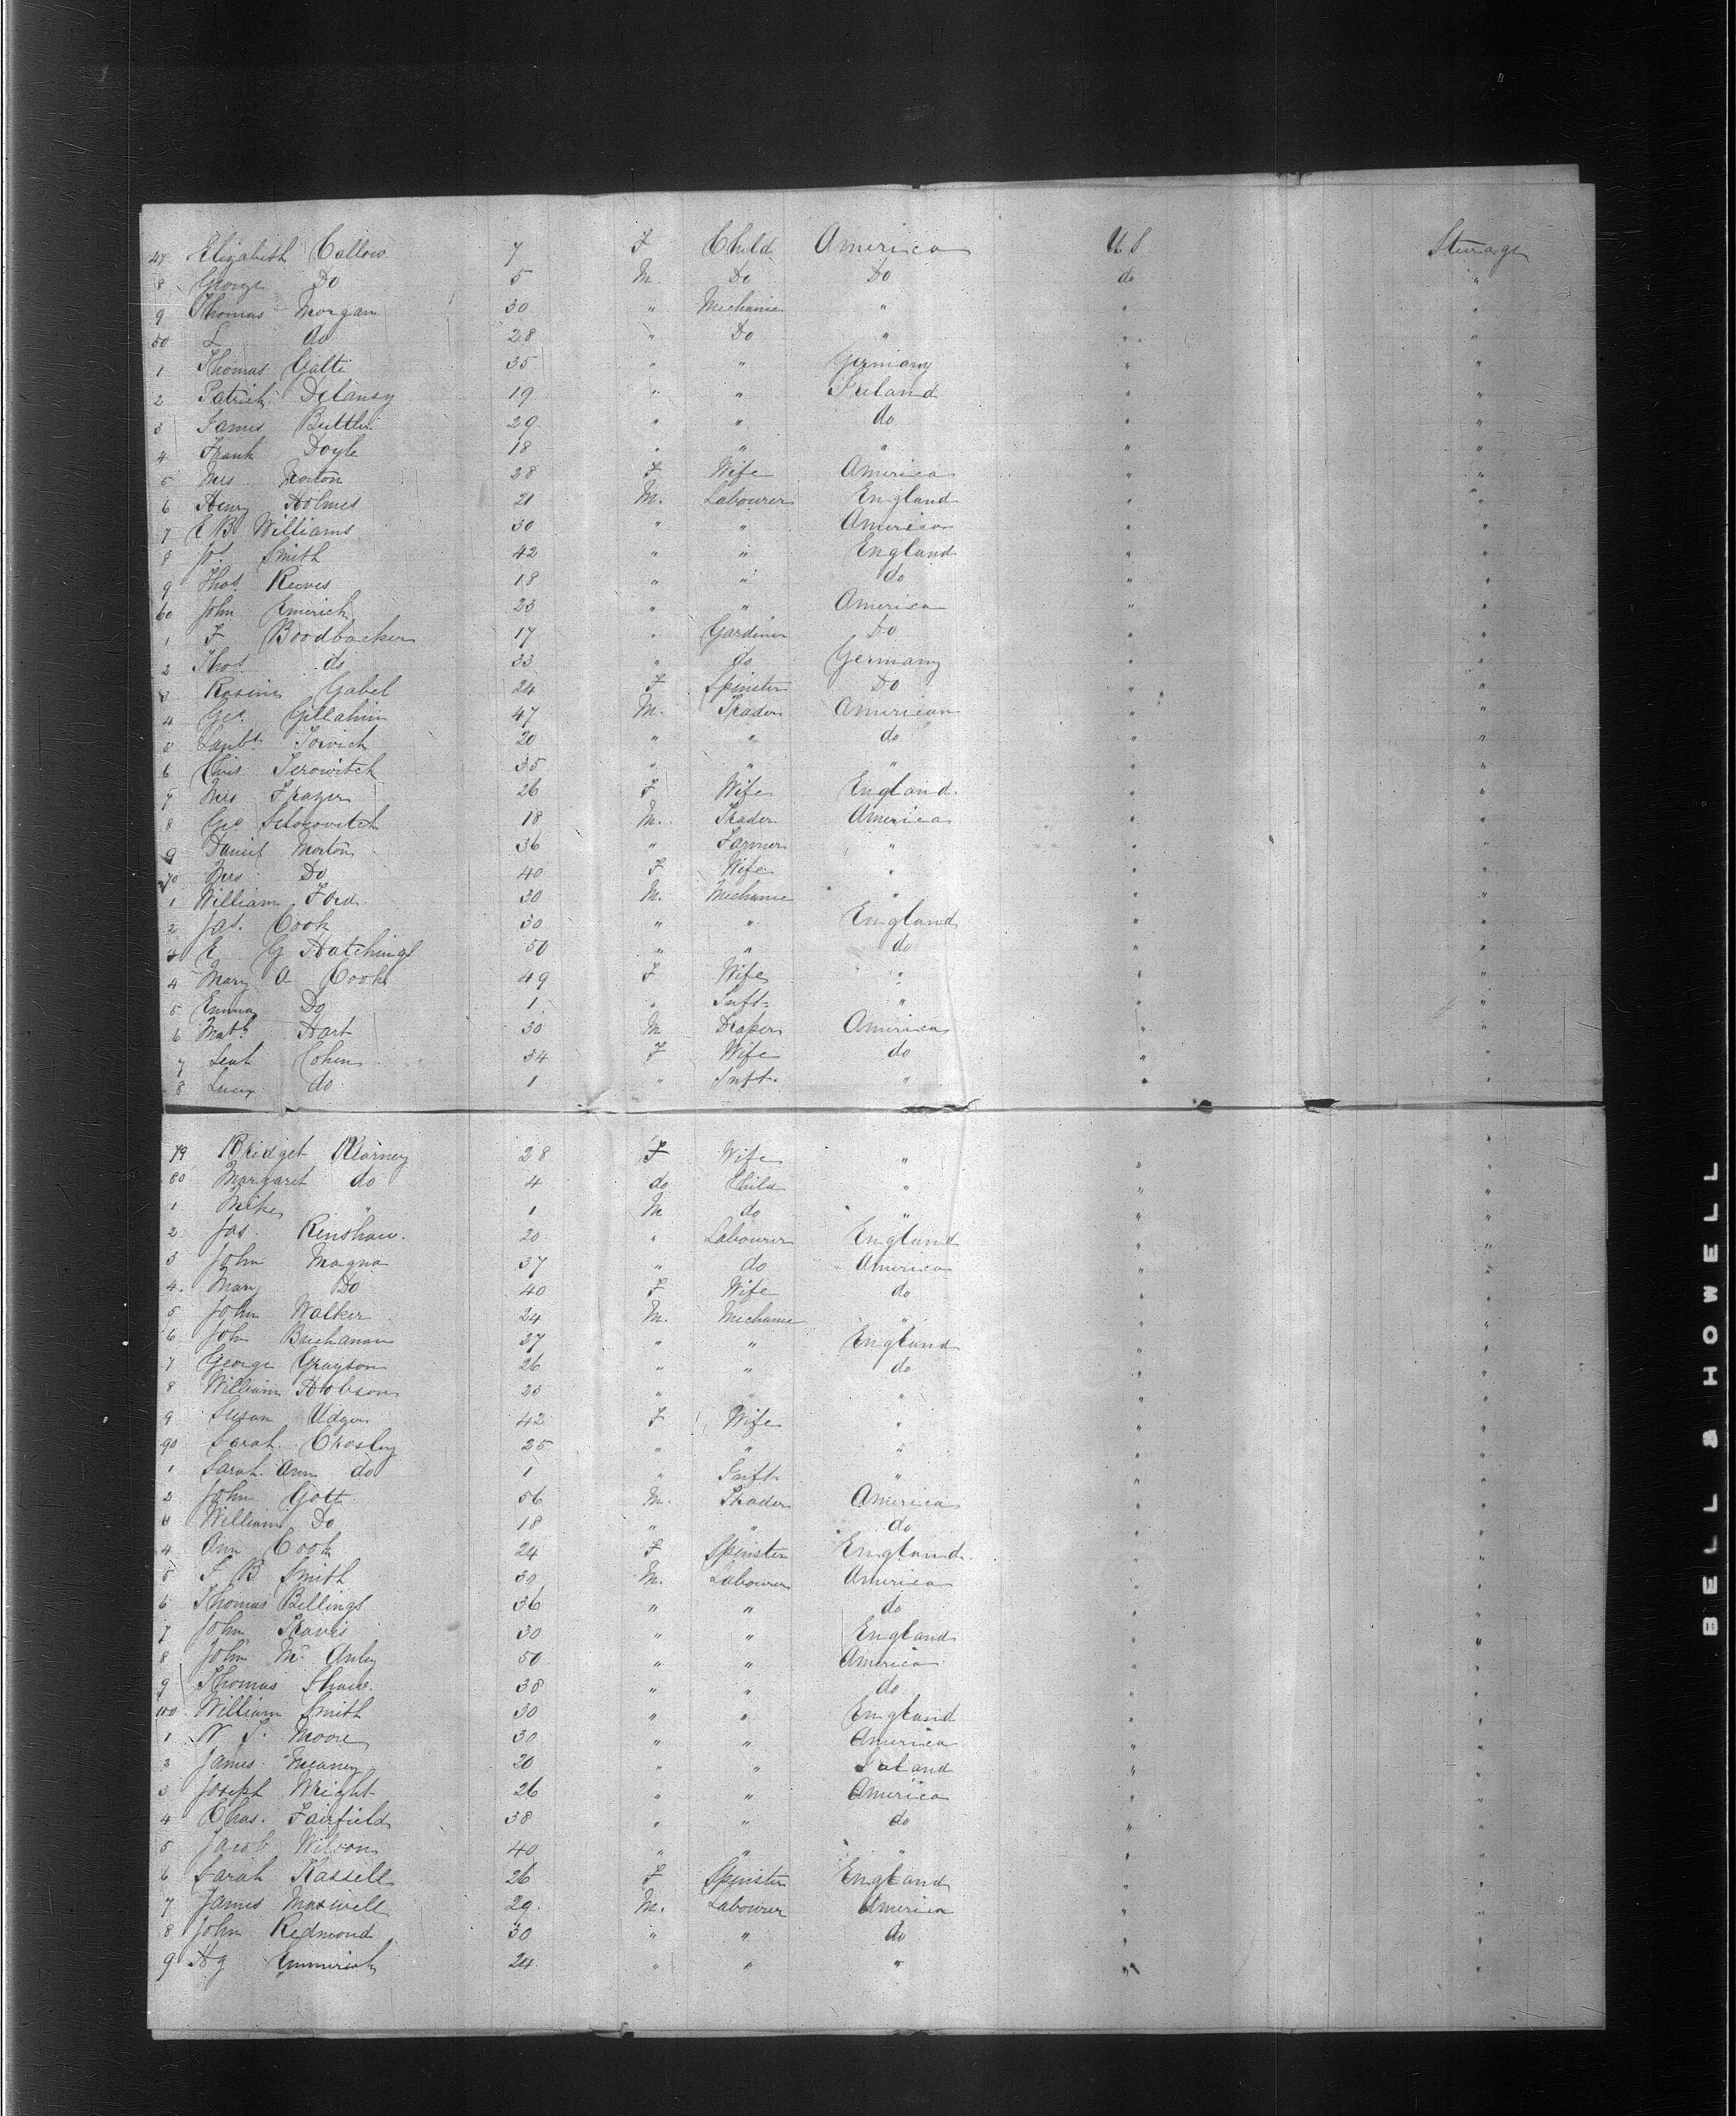 47 Elizabeth Callow 7 F Child America U S Sterage
8 George Do 5 M. Do Do do "
9 Thomas Morgan 30 " Mechanic " " "
50 L do 28 " Do " " "
1 Thomas Galti 35 " " Germany " "
2 Patrick Delansy 19 " " Ireland " "
3 James Buttler 29 " " do " "
4 Frank Doyle 18 " " " " "
5 Mrs Norton 28 F Wife America " "
6 Henry Holmes 21 M. Labourer England " "
7 E B Williams 30 " " America " "
8 Jos. Smith 42 " " England " "
9 Thos. Reeves 18 " " do " "
60 John Emerich 23 " " America " "
1 F Boodbacker 17 " Gardiner Do " "
2 Thos. do 33 " do Germany " "
3 Rosine Gabel 24 F Spinster Do " "
4 Geo. Gillahin 47 M. Trader American " "
5 20 " " do " "
6 Chis Serowitch 35 " " " " "
7 Mrs Frazer 26 F Wife England " "
8 Geo 18 M. Trader America " "
9 Daniel Morton 36 " Farmer " " "
70 Mrs Do 40 F Wife " " "
1 William Ford 30 M. Mechanic " " "
2 Jas. Cook 30 " " England " "
3 E G Hatchings 50 " " do " "
4 Mary A Cook 49 F Wife " " "
5 Emma Do 1 " Inft. " " "
6 Math Hart 30 M Draper America " "
7 Leah Cohen 34 F Wife do " "
8 Lucy do 1 " Inft. " " "
79 Bridget Klarney 28 F Wife " " "
80 Margaret do 4 do Child " " "
1 Mike " 1 M do " " "
2 Jas. Renshaw. 20 " Labourer England " "
3 John Magna 37 " do America " "
4. Mary Do 40 F Wife do " "
5 John Walker 24 M. Mechanic " " "
6 John Buchanan 37 " " England " "
7 George Grayson 26 " " do " "
8 William Hobson 23 " " " " "
9 Susan Udger 42 F Wife " " "
90 Sarah Crosley 25 " " " " "
1 Sarah Ann do 1 " Inft. " " "
2 John Gott 56 M. Trader America " "
3 William Do 18 " " do " "
4 Ann Cook 24 F Spinster England " "
5 F B Smith 30 M. Labourer America " "
6 Thomas Billings 36 " " do " "
7 John Travis 30 " " England " "
8 John Mc Anley 50 " " America " "
9 Thomas Shaw 38 " " do " "
100 William Smith 30 " " England " "
1 W S. Moore 30 " " America " "
2 James Meaney 20 " " Ireland " "
3 Joseph Wright 26 " " America " "
4 Chas. Fairfield 38 " " do " "
5 Jacob Wilson 40 " " " " "
6 Sarah Rassell 26 F Spinster England " "
7 James Maxwell 29. M. Labourer America " "
8 John Redmond 30 " " do " "
9 Hy Emmerich 24 " " " " "
BELL & HOWELL